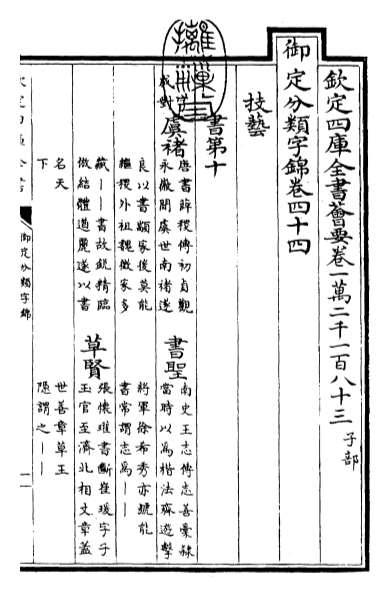 欽定四庫全書薈要卷一萬二千一百八十三 子部
御定分類字錦卷四十四
技藝
書第十
成對
虞褚
唐書薛稷傳初貞觀
永徽間虞世南褚遂
良以書顓家後莫能
繼稷外祖魏徵家多
藏——書故銳精臨
倣結體遒麗遂以書
名天
下
書聖
南史王志傳志善藁隸
當時以為楷法齊遊擊
將軍徐希秀亦號能
書常謂志為——
草賢
張懷瓘書斷崔瑗字子
玉官至濟北相文章蓋
世善章草王
隱謂之——
御定分類字錦
一